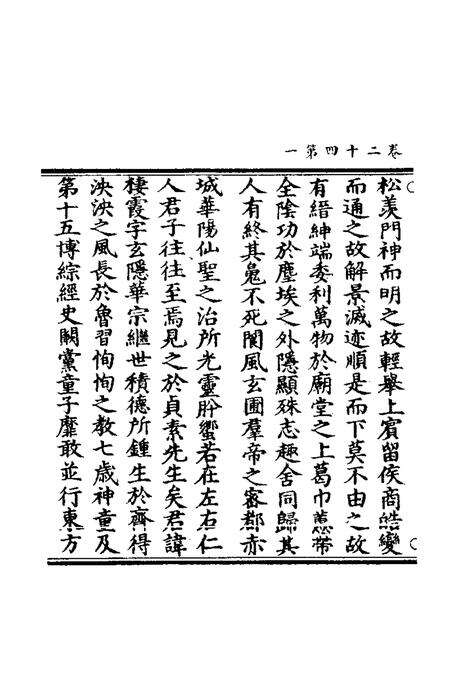 卷二十四第一
松羡門神而明之故輕舉上賓留侯商皓變
而通之故解景滅迹順是而下莫不由之故
有縉紳端委利萬物於廟堂之上葛巾蕙帶
全陰功於塵埃之外隱顯殊志趣舍同歸其
人有終其鬼不死閬風玄圃羣帝之密都赤
城華陽仙聖之治所光靈肹蠁若在左右仁
人君子往往至焉見之於貞素先生矣君諱
棲霞字玄隱華宗繼世積德所鍾生於齊得
泱泱之風長於魯習恂恂之教七歲神童及
第十五博綜經史闕黨童子靡敢並行東方